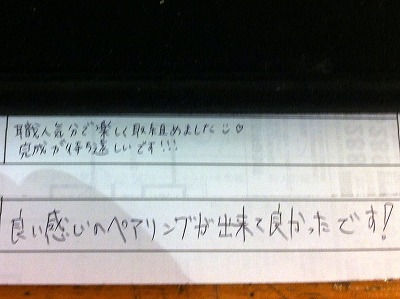 職人気分で楽しく取組めました☺♡
完成が待ち遠しいです!!!
良い感じのペアリングが出来て良かったです!